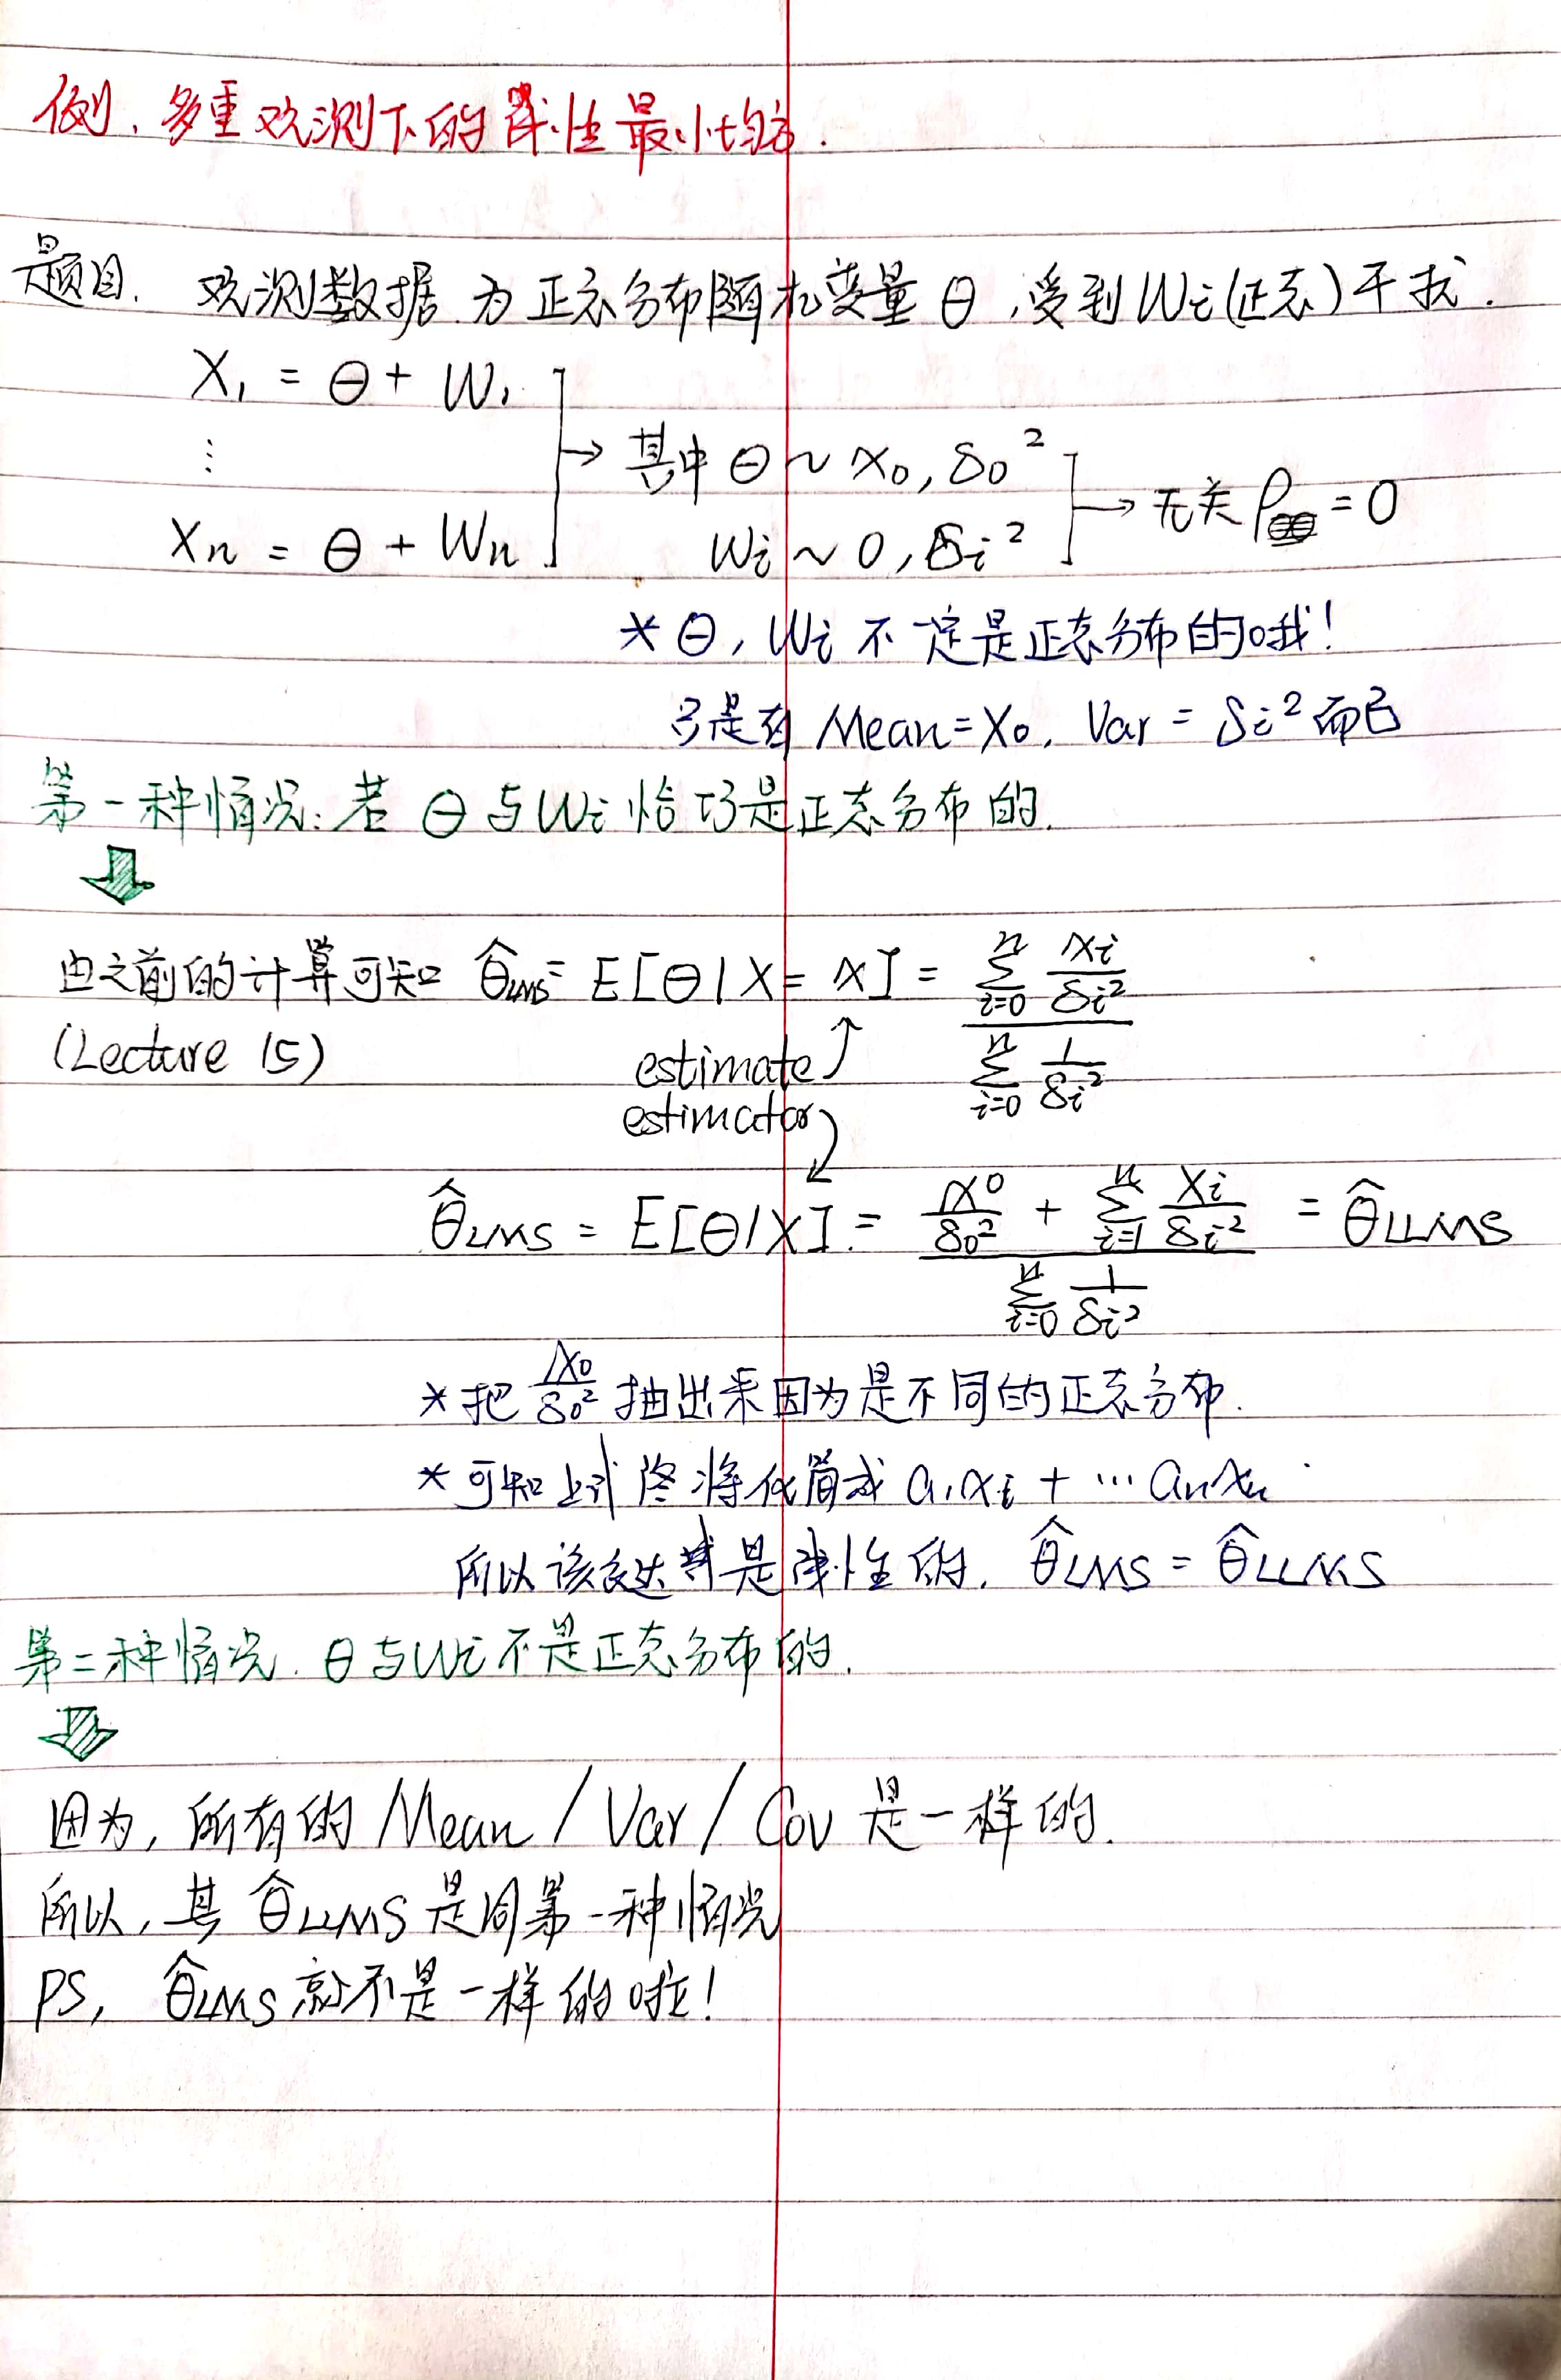 例. 多重观测下的线性最小均方.
题目. 观测数据为正态分布随机变量 Θ, 受到 Wi (正态) 干扰.
X₁ = Θ + W₁
⋮
Xn = Θ + Wn
→ 其中 Θ ~ x₀, δ₀²
Wi ~ 0, δi²
→ 无关 ρ = 0
* Θ, Wi 不一定是正态分布的哦!
只是有 Mean = X₀, Var = δi² 而已
第一种情况: 若 Θ 与 Wi 恰巧是正态分布的.
由之前的计算可知 θ̂LMS = E[Θ|X = x] = (Σ_{i=0}^{n} xi/δi²) / (Σ_{i=0}^{n} 1/δi²)
(Lecture 15)
estimate
estimator
Θ̂LMS = E[Θ|X] = (x₀/δ₀² + Σ_{i=1}^{n} Xi/δi²) / (Σ_{i=0}^{n} 1/δi²) = Θ̂LLMS
* 把 x₀/δ₀² 抽出来因为是不同的正态分布.
* 可知上式 将化简成 a₁xi + ⋯ anxn
所以该表达式是线性的. Θ̂LMS = Θ̂LLMS
第二种情况. Θ 与 Wi 不是正态分布的.
因为, 所有的 Mean / Var / Cov 是一样的.
所以, 其 Θ̂LLMS 是同第一种情况
PS, Θ̂LMS 就不是一样的啦!